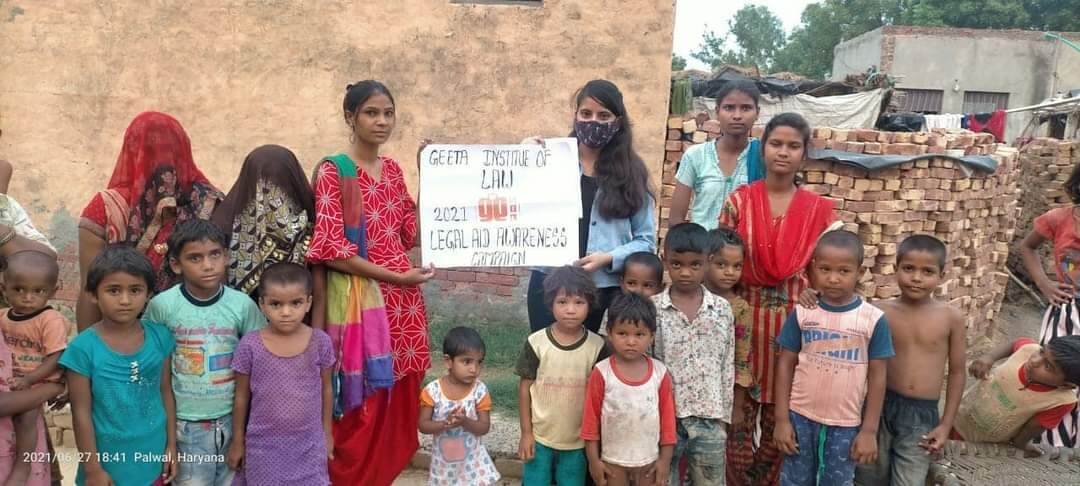 GEETA INSTITUE OF
LAW
2021
LEGAL AID AWARENESS
CAMPAIGN
2021/06/27 18:41 Palwal, Haryana